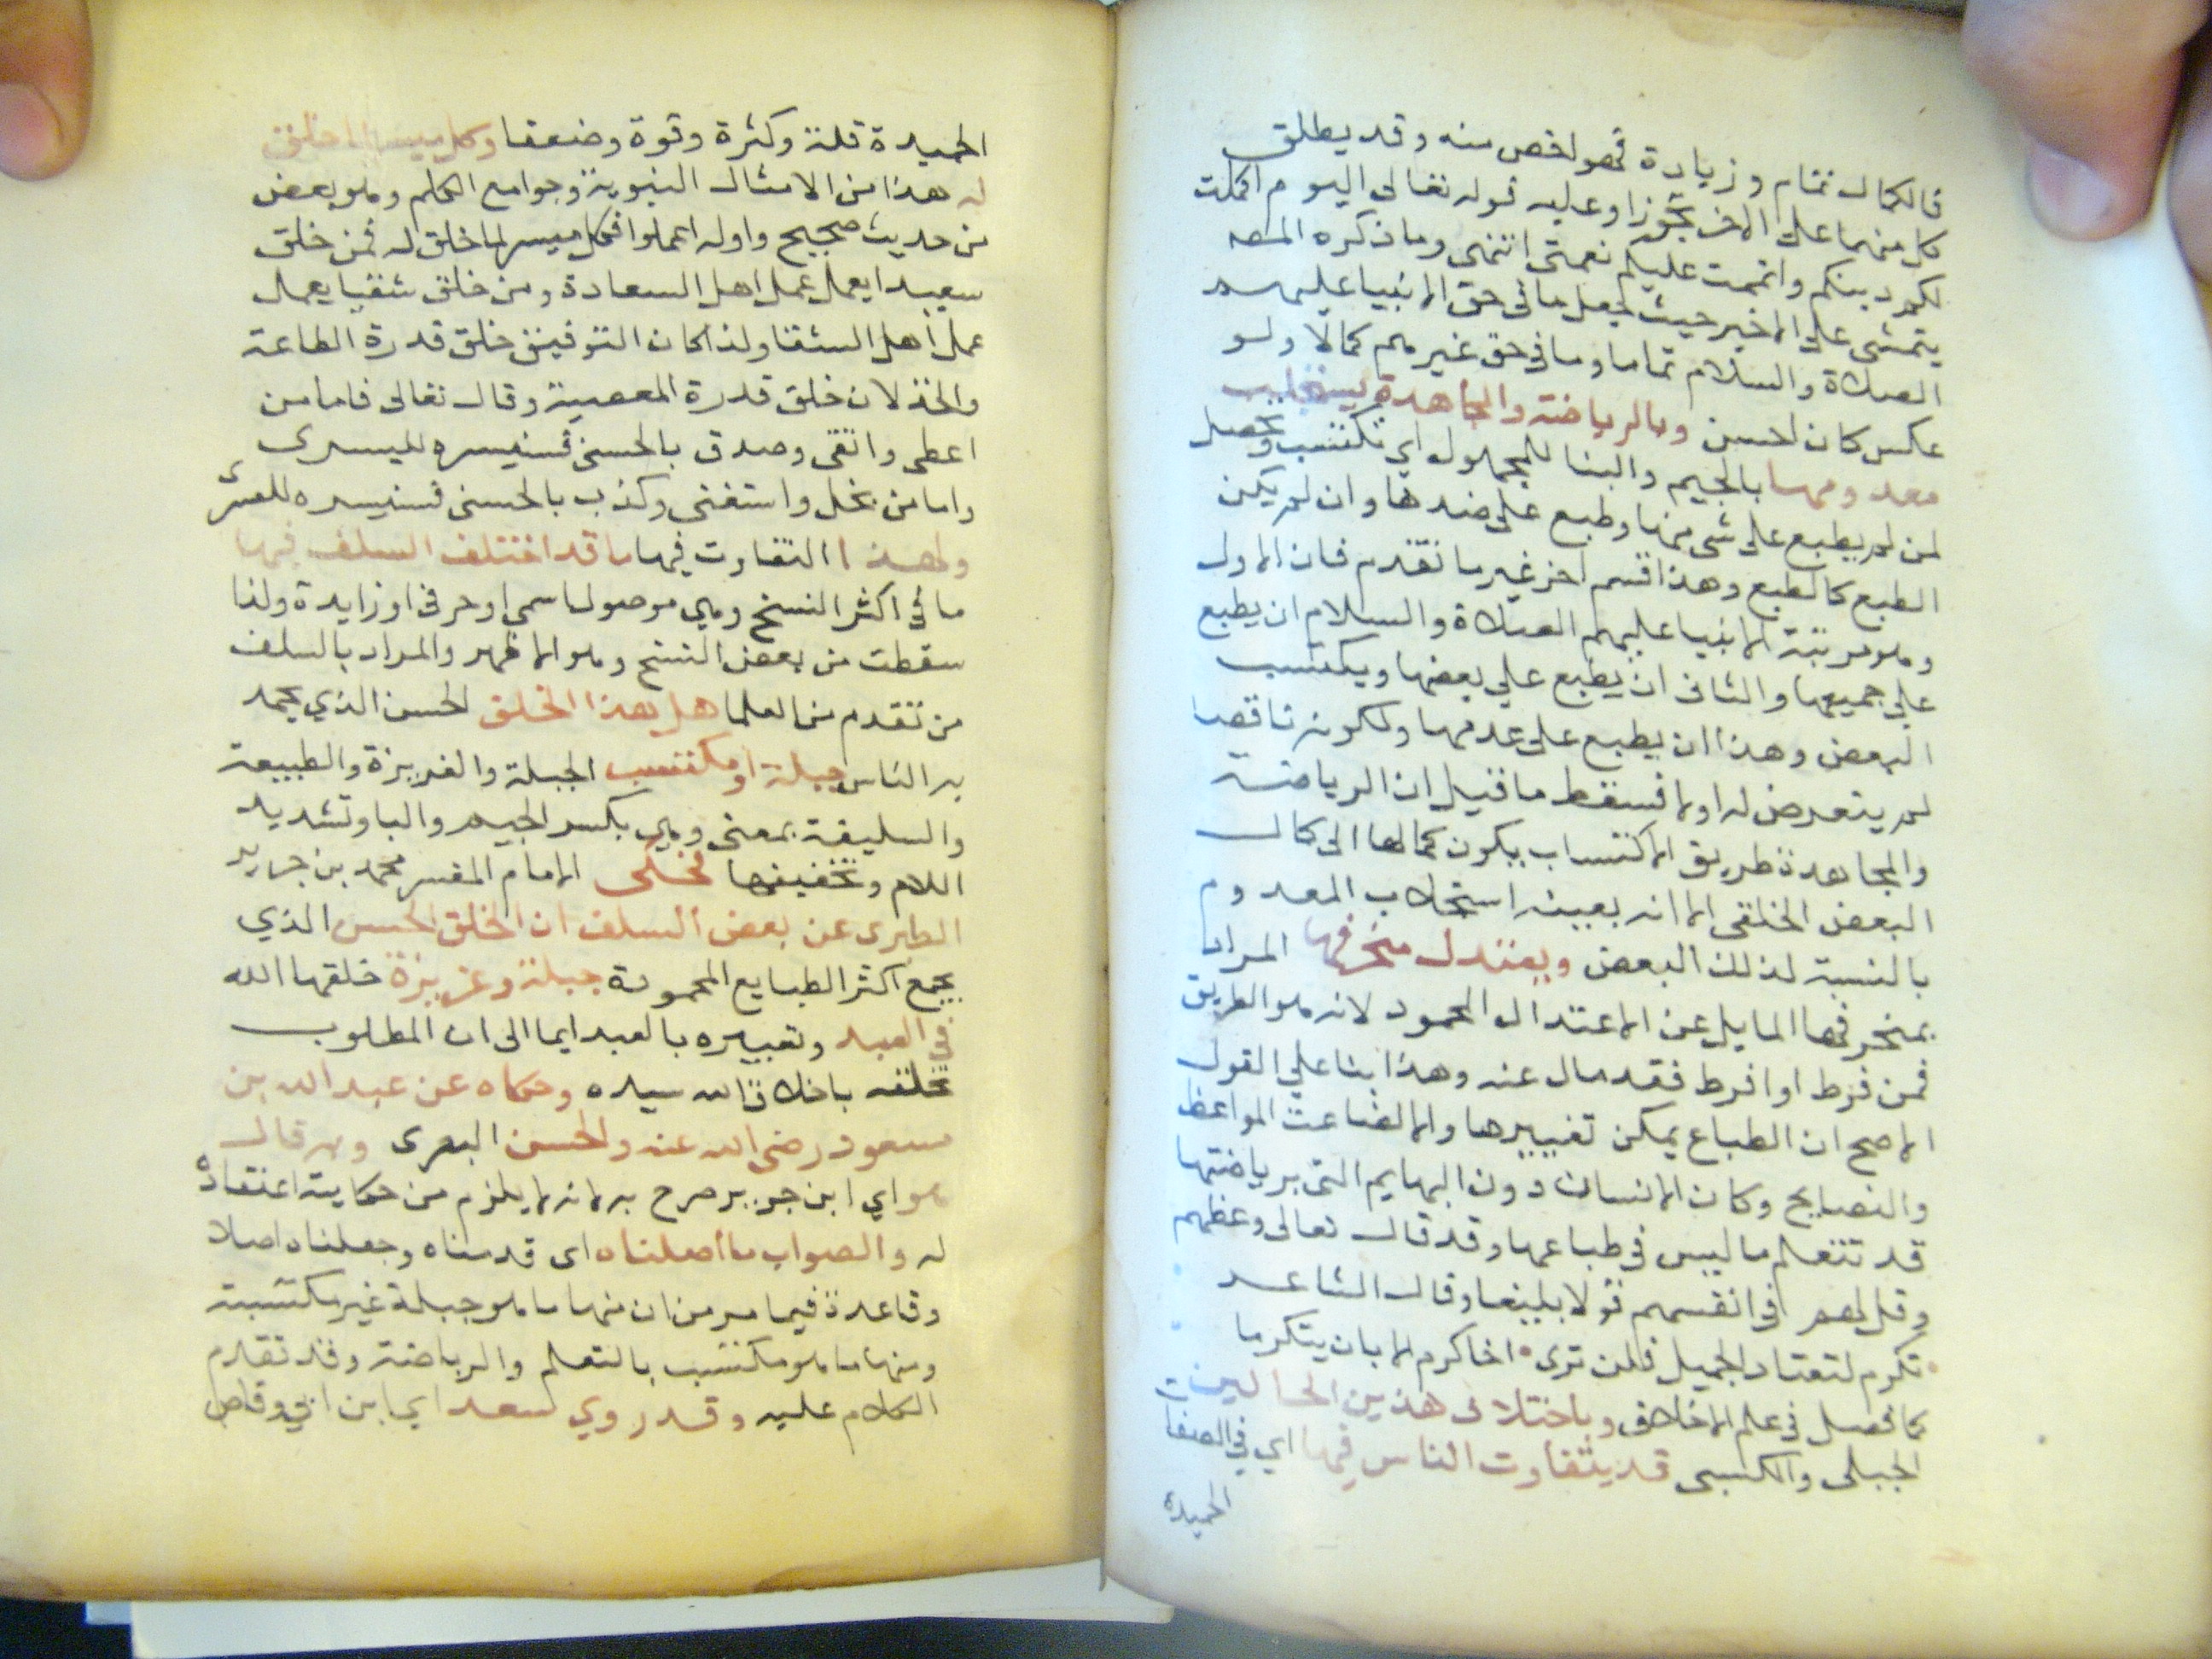 فالكمال تمام وزيادة فهو اخص منه وقد يطلق
كل منهما على الاخر تجوزا وعليه قوله تعالى اليوم اكملت
لكم دينكم واتممت عليكم نعمتي انتهى وما ذكره المصه
يتمشى على الاخير حيث جعل ما في حق الانبيا عليهم
الصلاة والسلام تماما وما في حق غيرهم كمالا ولو
عكس كان احسن وبالرياضة والمجاهدة يستجلب
معدومها بالجيم والبنا للمجهول اي تكتسب وتحصل
لمن لم يطبع على شي منها وطبع على ضدها وان لم يكن
الطبع كالطبع وهذا قسم اخر غير ما تقدم فان الاول
وهو مرتبة الانبيا عليهم الصلاة والسلام ان يطبع
علي جميعها والثاني ان يطبع علي بعضها ويكتسب
البعض وهذا ان يطبع على عدمها ولكونه ناقصا
لم يتعرض له اولا فسقط ما قيل ان الرياضة
والمجاهدة طريق الاكتساب يكون كمالها الى كمال
البعض الخلقي الا انه بعينه استجلاب المعدوم
بالنسبة لذلك البعض ويعتدل منحرفها المراد
بمنحرفها المايل عن الاعتدال المحمود لانه هو الطريق
فمن فرط او افرط فقد مال عنه وهذا بنا علي القول
الاصح ان الطباع يمكن تغييرها والا لضاعت المواعظ
والنصايح وكان الانسان دون البهايم التي برياضتها
قد تتعلم ما ليس في طباعها وقد قال تعالى وعظهم
وقل لهم في انفسهم قولا بليغا وقال الشاعر
تكرم لتعتاد الجميل فلن ترى اخا كرم الا بان يتكرما
كما فصل في علم الاخلاق وباختلاف هذين الحالين
الجبلي والكسبي قد يتفاوت الناس فيها اي في الصفات
الحميدة
الحميدة قلة وكثرة وقوة وضعفا وكل ميسر لما خلق
له هذا من الامثال النبوية وجوامع الكلم وهو بعض
من حديث صحيح واوله اعملوا فكل ميسر لما خلق له فمن خلق
سعيدا يعمل عمل اهل السعادة ومن خلق شقيا يعمل
عمل اهل الشقا ولذا كان التوفيق خلق قدرة الطاعة
والخذلان خلق قدرة المعصية وقال تعالى فاما من
اعطى واتقى وصدق بالحسنى فسنيسره لليسرى
واما من بخل واستغنى وكذب بالحسنى فسنيسره للعسرى
ولهذا التفاوت فيها ما قد اختلف السلف فيها
ما في اكثر النسخ وهي موصول اسمي او حرفي او زايدة ولذا
سقطت من بعض النسخ وهو الاظهر والمراد بالسلف
من تقدم من العلما هل هذا الخلق الحسن الذي يحمد
به الناس جبلة او مكتسب الجبلة والغريزة والطبيعة
والسليقة بمعنى وهي بكسر الجيم والبا وتشديد
اللام وتخفيفها فحكى الامام المفسر محمد بن جرير
الطبرى عن بعض السلف ان الخلق الحسن الذي
يجمع اكثر الطبايع المحمودة جبلة وغريزة خلقها الله
في العبد وتعبيره بالعبد ايما الى ان المطلوب
تخلقه باخلاق الله سيده وحكاه عن عبد الله بن
مسعود رضى الله عنه والحسن البصرى وبه قال
هو اي ابن جرير صرح به لانه لا يلزم من حكايته اعتقاده
له والصواب ما أصلناه اى قدمناه وجعلناه اصلا
وقاعدة فيما مر من ان منها ما هو جبلة غير مكتسبة
ومنها ما هو مكتسب بالتعلم والرياضة وقد تقدم
الكلام عليه وقد روي سعد اي ابن ابي وقاص